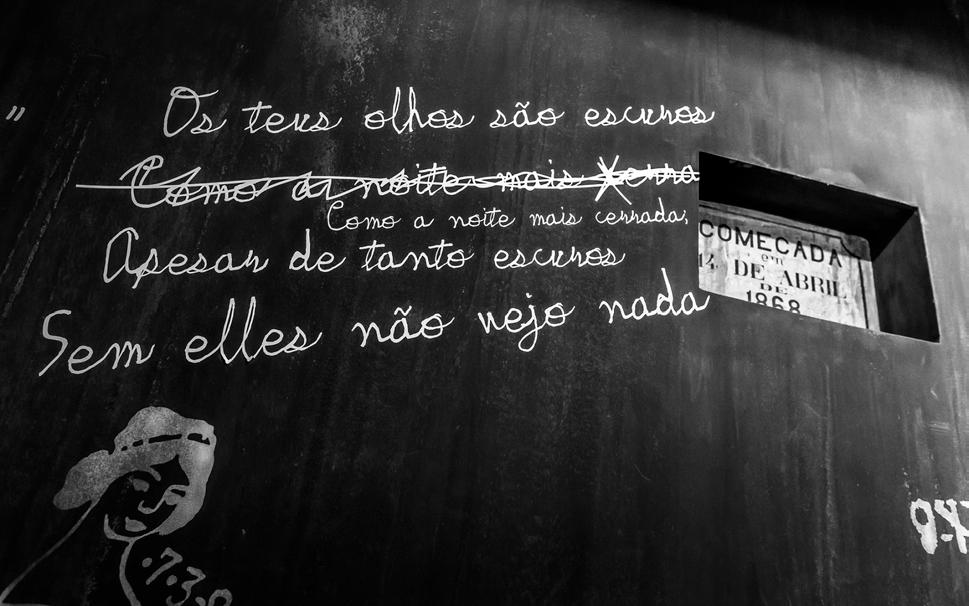 "
Os teus olhos são escuros
Como a noite mais
Como a noite mais cerrada;
Apesar de tanto escuros
Sem elles não vejo nada
COMECADA
em
14 DE ABRIL
DE
1868
.7.3.